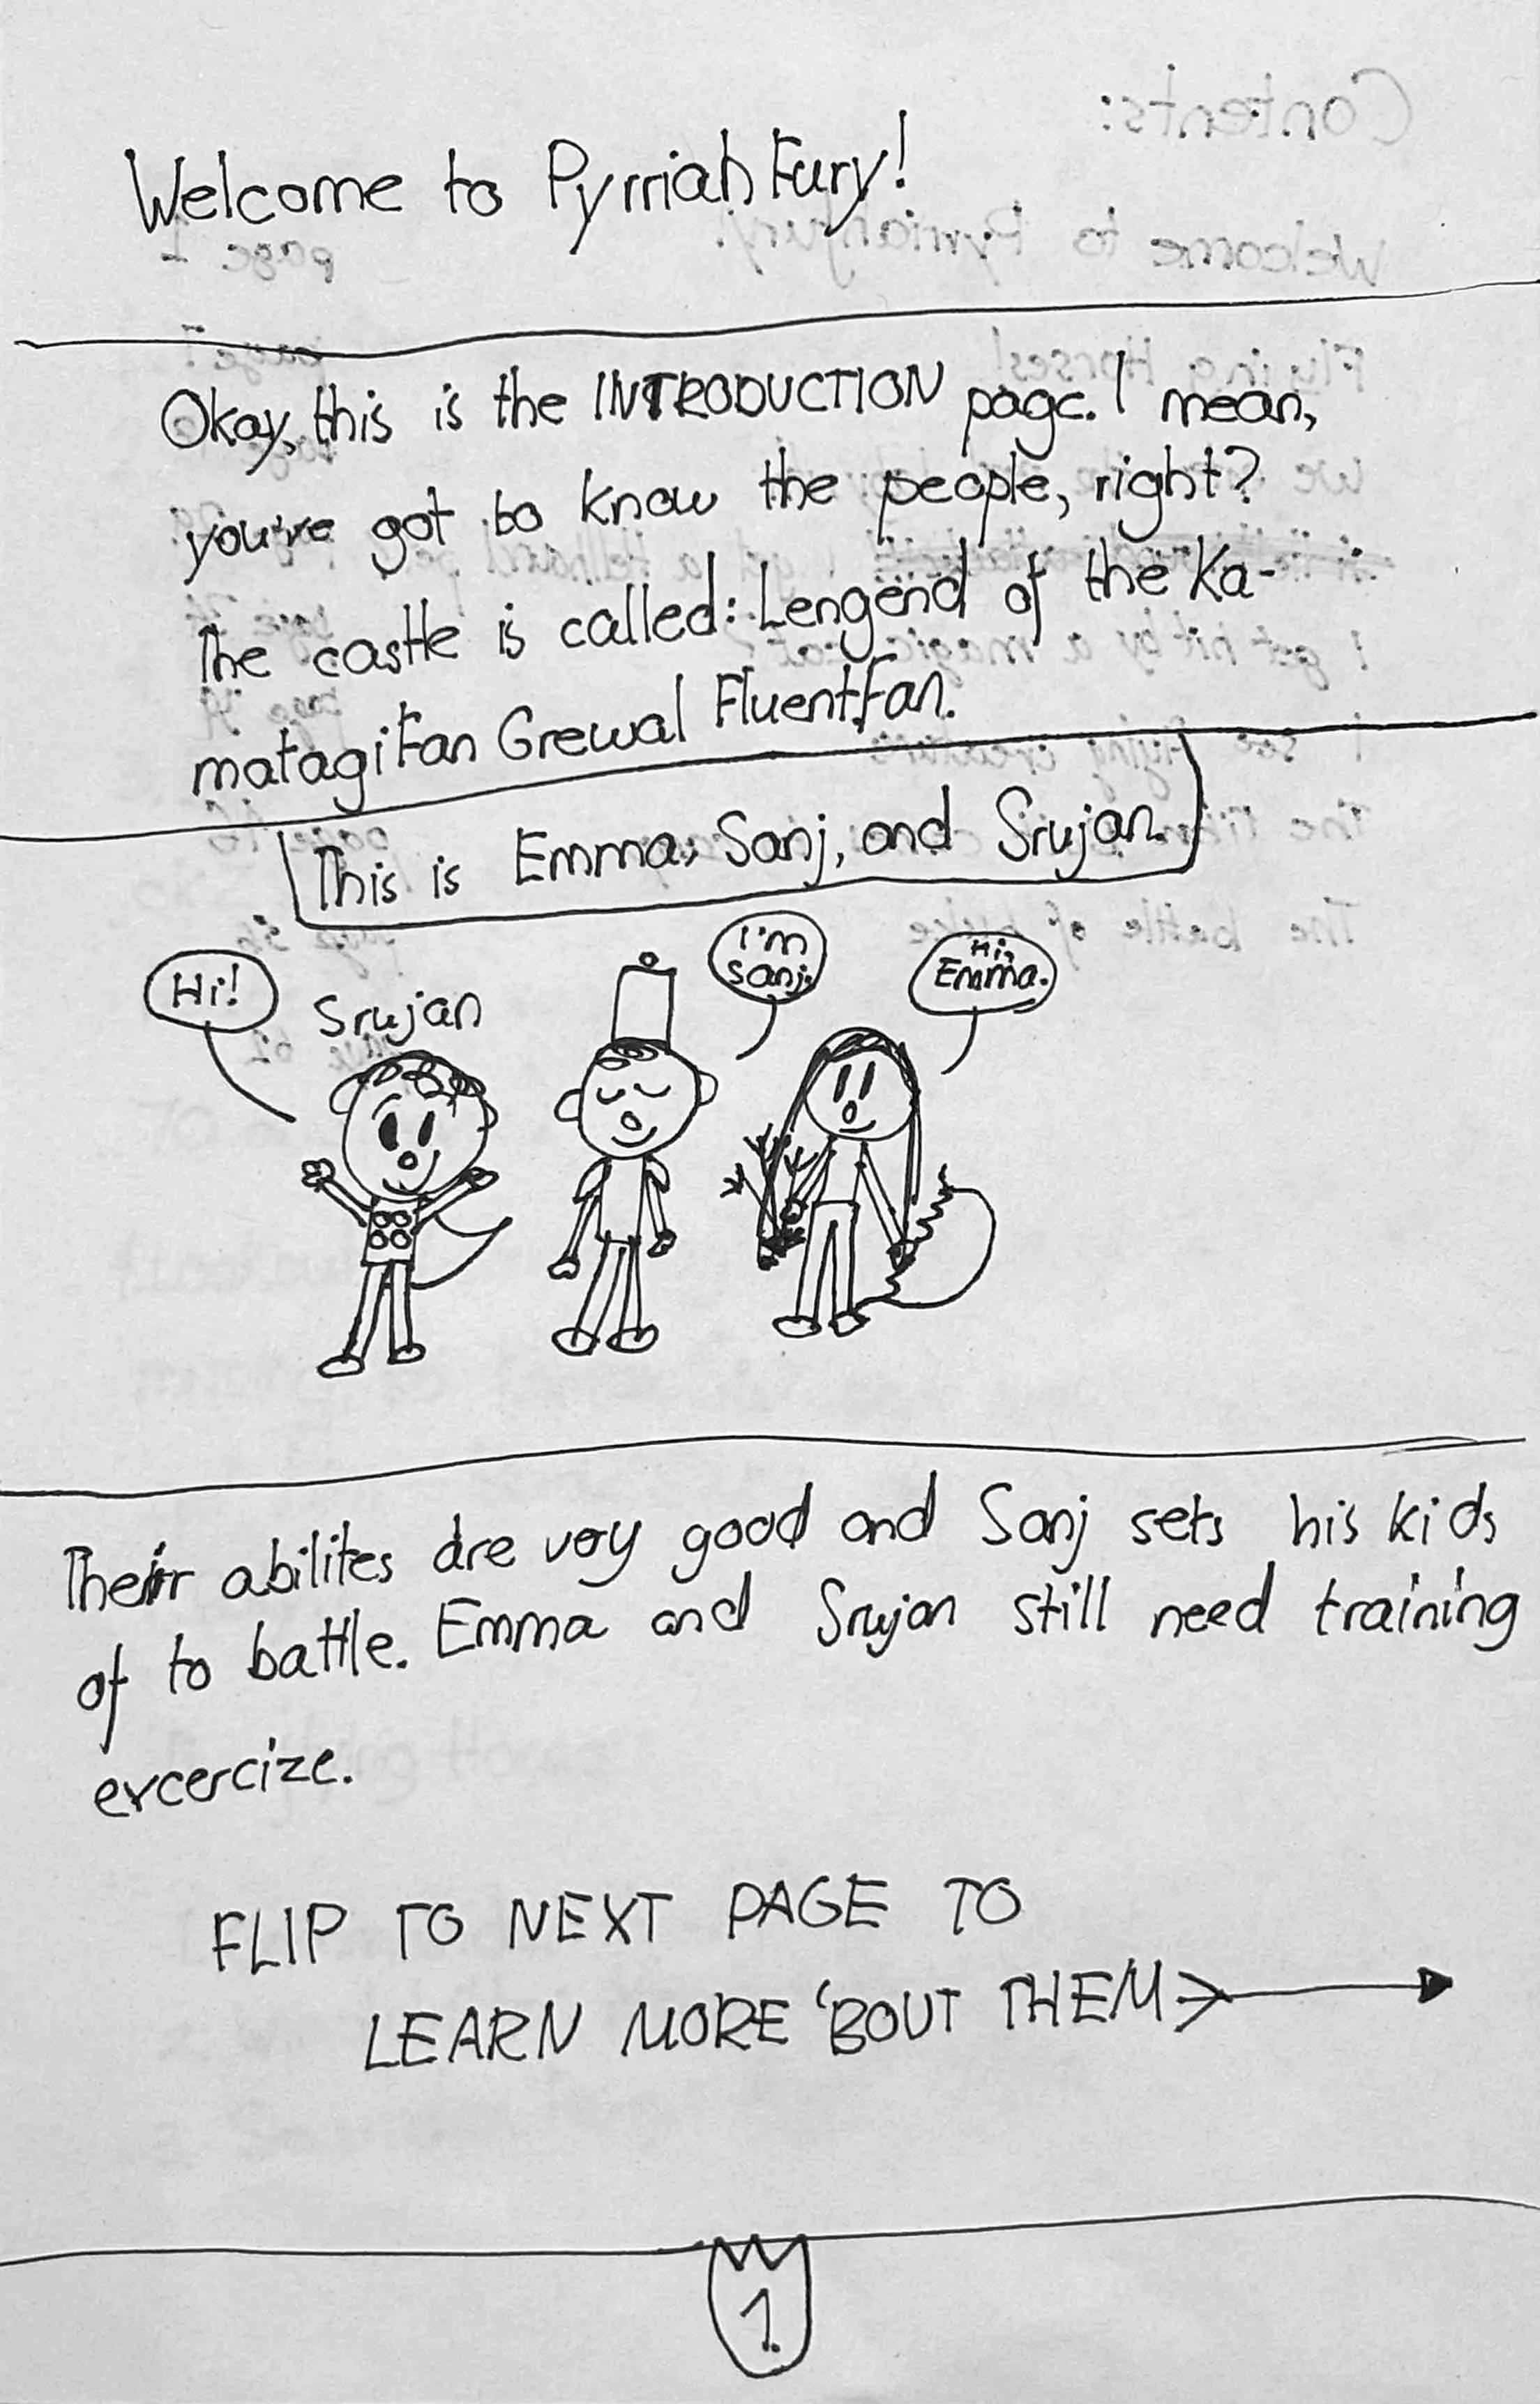 Welcome to Pyrriah Fury!
Okay, this is the INTRODUCTION page. I mean,
you've got to know the people, right?
The castle is called: Lengend of the Ka-
matagiFan Grewal FluentFan.
This is Emma, Sanj, and Srujan.
Hi!
Srujan
I'm
Sanj.
Hi,
Emma.
Their abilites are very good and Sanj sets his kids
of to battle. Emma and Srujan still need training
excercize.
FLIP TO NEXT PAGE TO
LEARN MORE 'BOUT THEM
1.